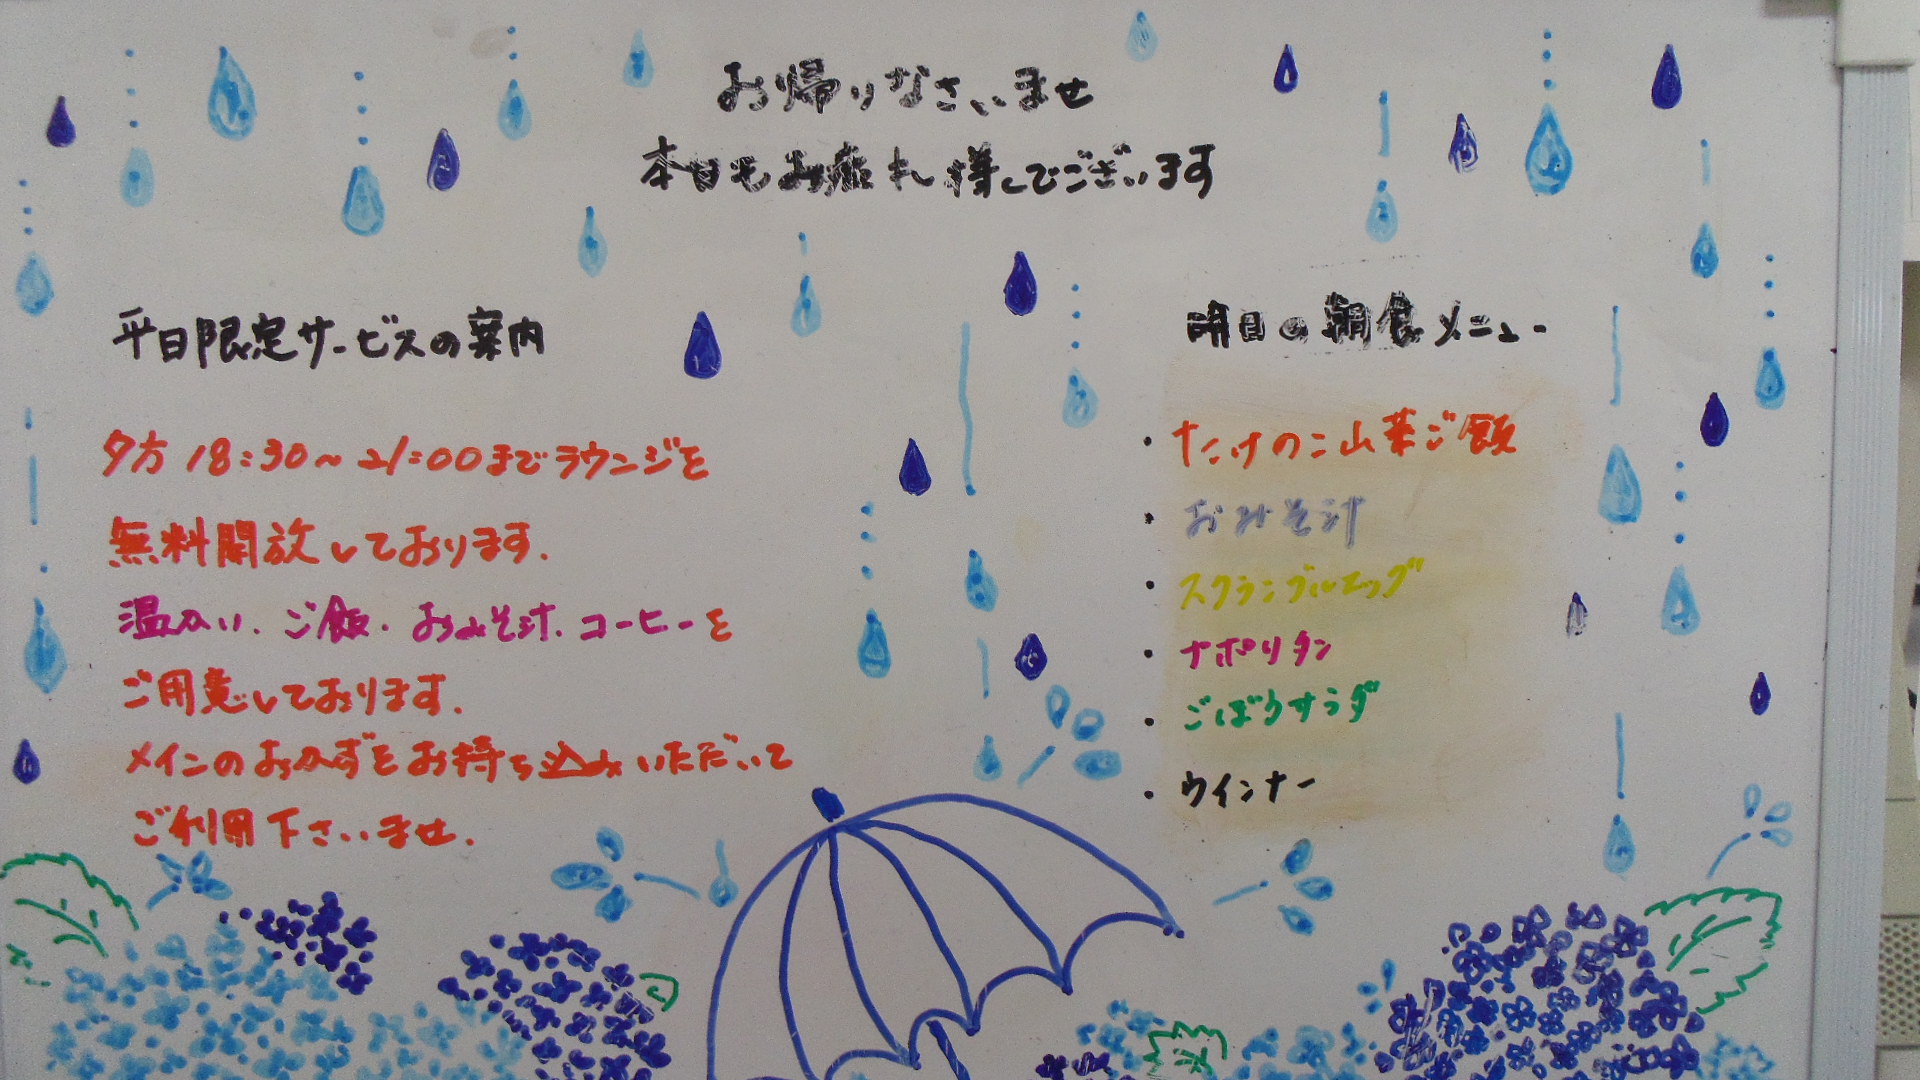 お帰りなさいませ
本日もお疲れ様でございます
平日限定サービスの案内
夕方 18:30～21:00までラウンジを
無料開放しております.
温かい、ご飯・おみそ汁、コーヒーを
ご用意しております.
メインのおかずをお持ち込みいただいて
ご利用下さいませ.
明日の朝食メニュー
・たけのこ山菜ご飯
・おみそ汁
・スクランブルエッグ
・ナポリタン
・ごぼうサラダ
・ウインナー